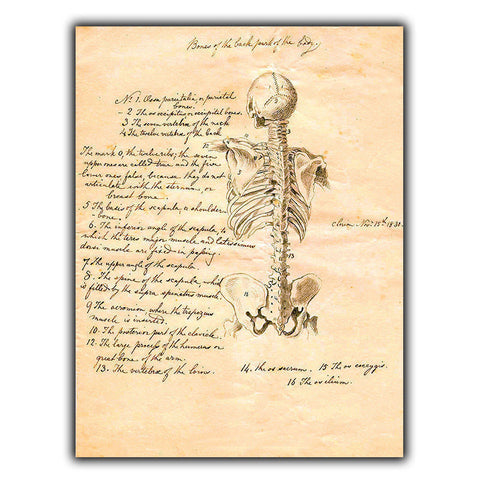 Bones of the back part of the body.
No 1. Ossa parietalia, or parietal
bones.
2 The os occipitis or occipital bones.
3 The seven vertebræ of the neck
4 The twelve vertebræ of the back
The mark 0, the twelve ribs; the seven
upper ones are called true and the five
lower ones false, because they do not
articulate with the sternum, or
breast bone.
5 The basis of the scapula, or shoulder
-bone.
6. The inferior angle of the scapula, to
which the teres major muscle and latissimus
dorsi muscle are fixed in passing
7 The upper angle of the scapula.
8. The spine of the scapula, which
is filled by the supra spinatus muscle.
9 The acromion where the trapezius
muscle is inserted.
10. The posterior part of the clavicle.
12. The large process of the humerus or
great bone of the arm.
13. The vertebræ of the loins.
Nov 15th 1830.
14. the os sacrum. 15 The os coccygis.
16 The os ilium.